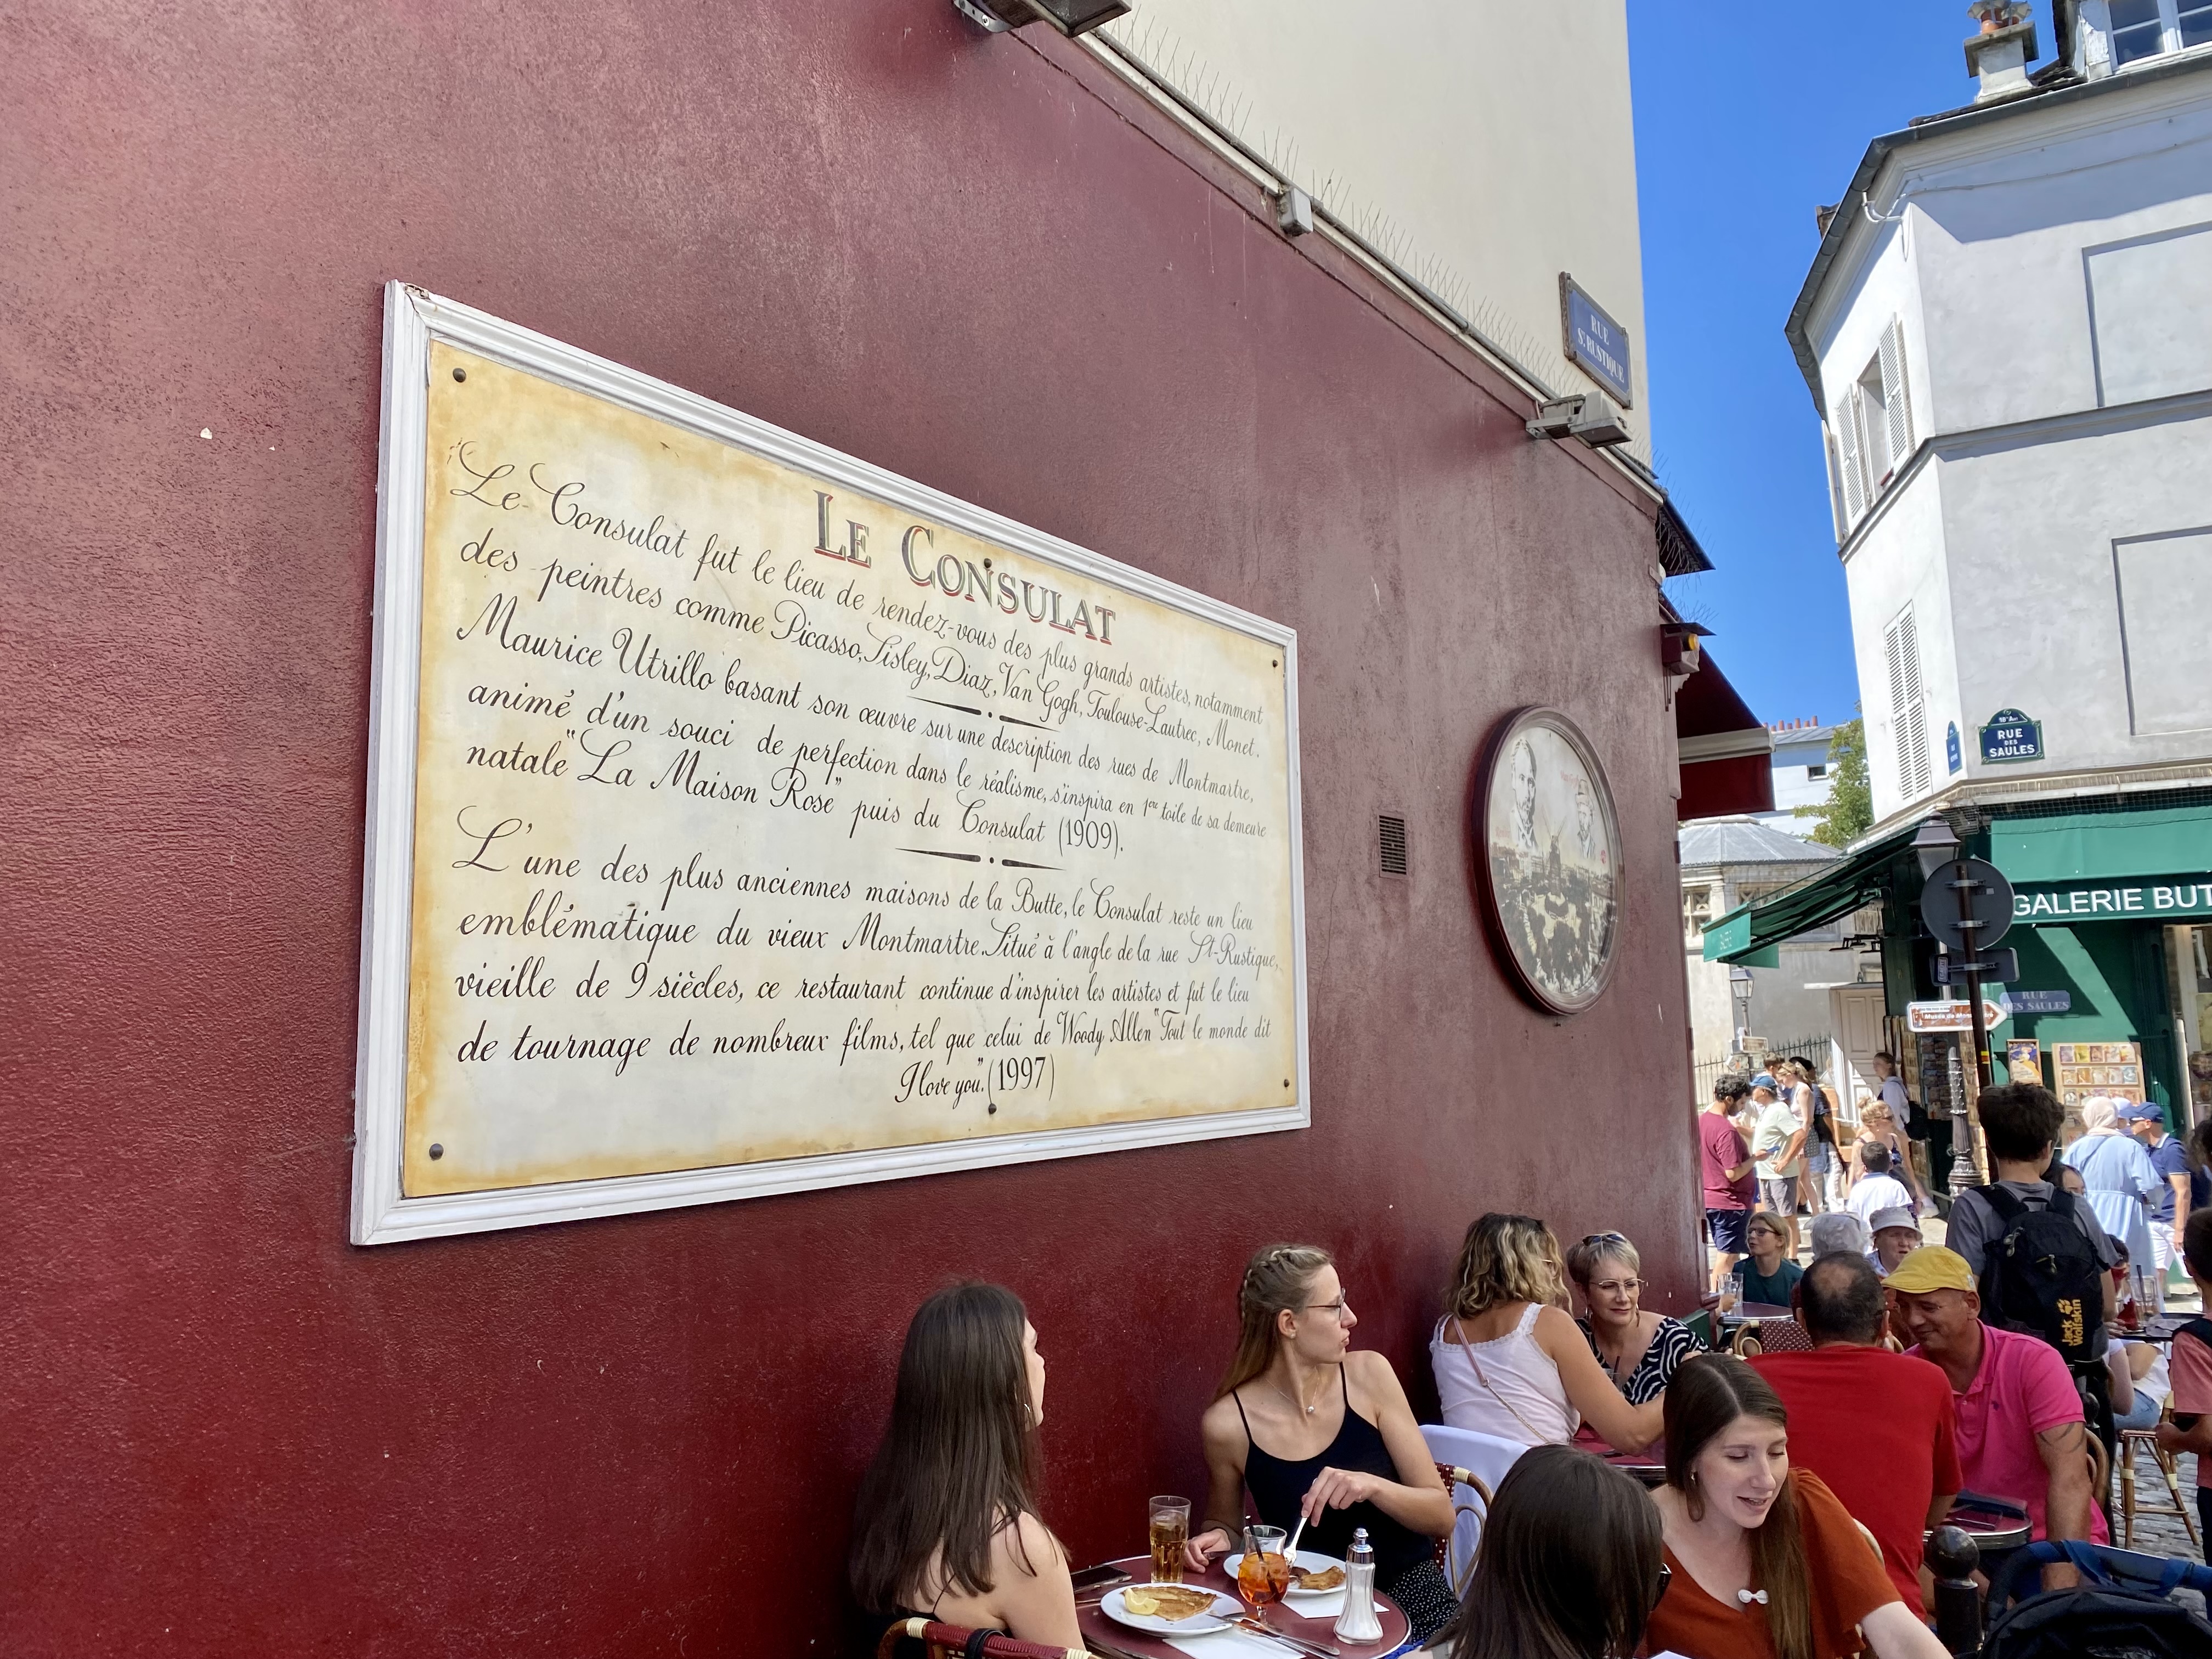 LE CONSULAT
Le Consulat fut le lieu de rendez-vous des plus grands artistes, notamment
des peintres comme Picasso, Sisley, Diaz, Van Gogh, Toulouse-Lautrec, Monet.
Maurice Utrillo basant son œuvre sur une description des rues de Montmartre,
animé d'un souci de perfection dans le réalisme, s'inspira en 1ere toile de sa demeure
natale "La Maison Rose" puis du Consulat (1909).
L'une des plus anciennes maisons de la Butte, le Consulat reste un lieu
emblématique du vieux Montmartre. Situé à l'angle de la rue St-Rustique,
vieille de 9 siècles, ce restaurant continue d'inspirer les artistes et fut le lieu
de tournage de nombreux films, tel que celui de Woody Allen "Tout le monde dit
I love you". (1997)
RUE
ST RUSTIQUE
18e Arrt
RUE
DES
SAULES
GALERIE BUT
RUE
DES SAULES
Jack
Wolfskin